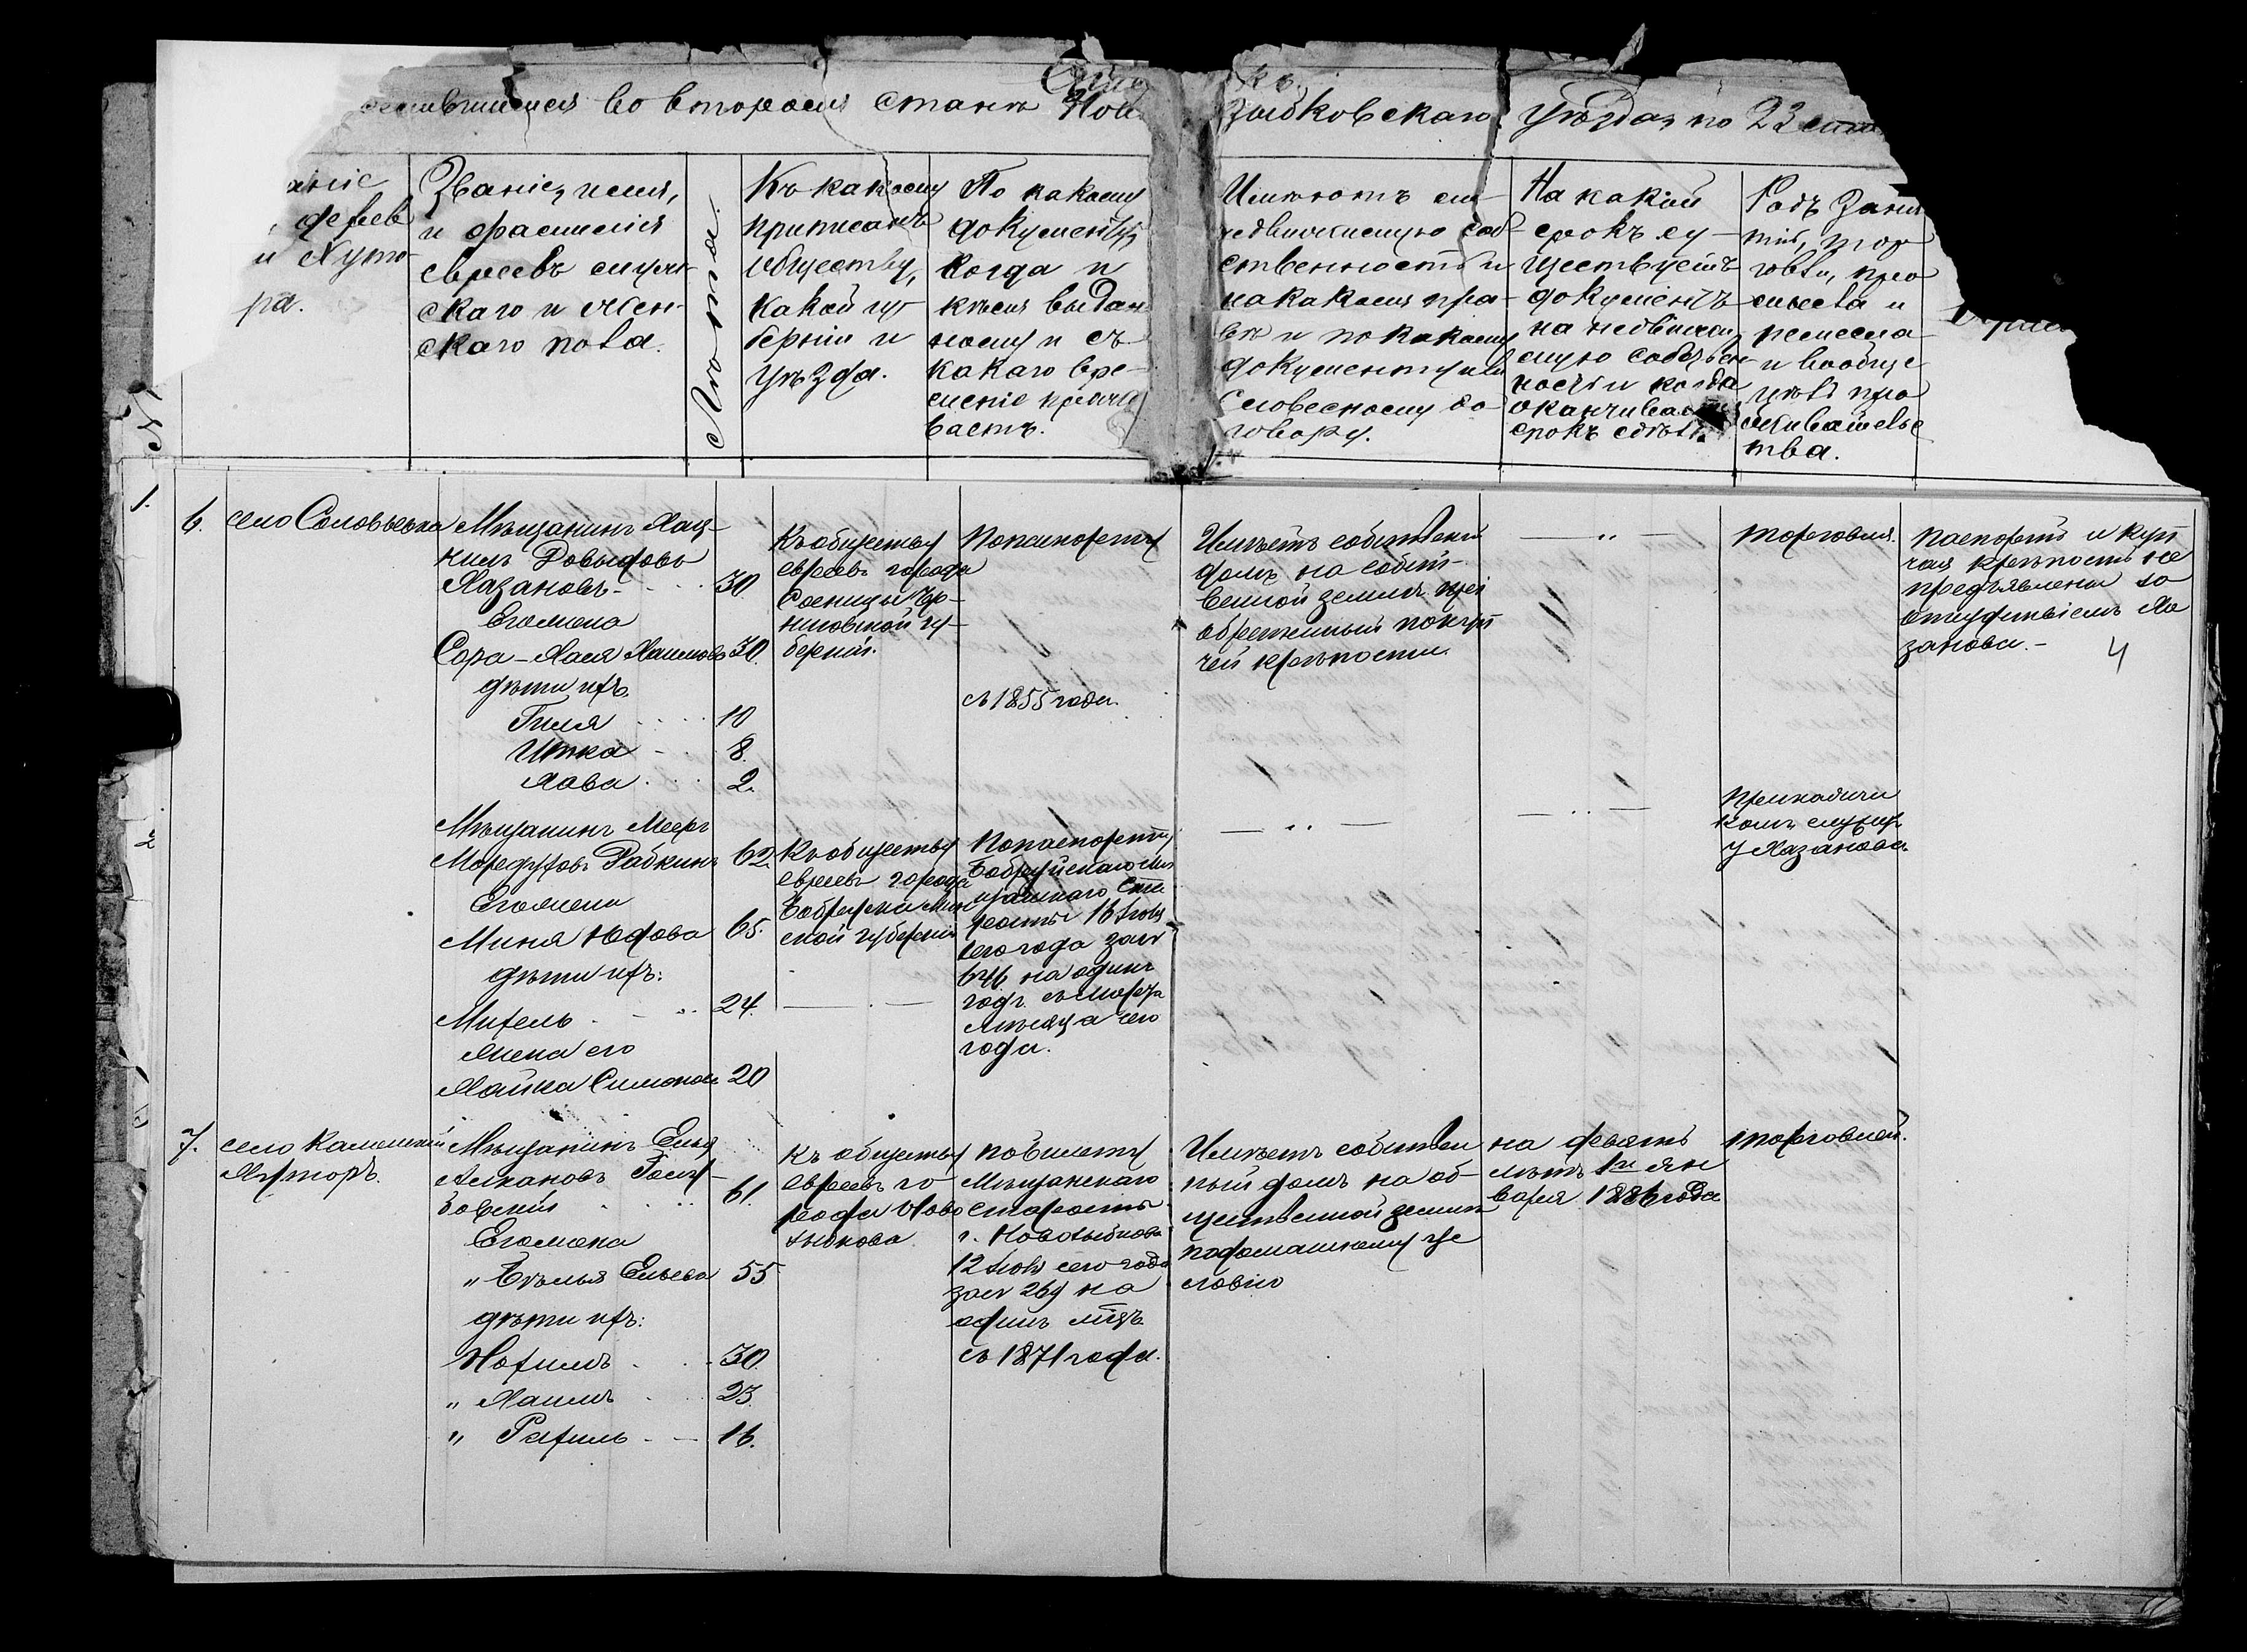 во второмъ станѣ
Зыбковскаго уѣзда, по 23
аніе
дерев
и Хуто-
ра.
Званіе, имя,
и фамилія
евреевъ муж-
скаго и жен-
скаго пола.
Лѣта.
Къ какому
приписанъ
обществу,
какой гу-
берніи и
уѣзда.
По какому
документу,
когда и
кѣмъ выдан
ному и съ
какаго вре-
мени прожи
ваетъ.
Имѣютъ ли
недвижимую соб-
ственность и
на какомъ пра-
вѣ и по какому
документу или
словесному до-
говору.
На какой
срокъ су-
ществуетъ
документъ
на недвижи
мую собствен-
ность и когда
оканчивается
срокъ
Родъ заня
тій, тор
говли, про
мысла и
ремесла
и вообще
цѣль про
живательс
тва.
1.
6. село Соловьевка
Мѣщанинъ Хац-
кель Довыдовъ
Хазановъ - 30
Его жена
Сора-Хася Хаимова 30.
дѣти ихъ
Гиля 10
Итка - 8.
Хава 2.
Къ обществу
евреевъ города
Сосницы Чер-
ниговской гу-
берніи.
По паспорту
съ 1855 года.
Имѣетъ собственный
домъ на собст-
венной землѣ прі
обретенный по куп
чей крѣпости.
— „ —
торговля.
паспортъ и куп
чая крѣпость не
предъявлены за
отсутствіемъ Ха
занова. -
4
2
Мѣщанинъ Мееръ
Мордуховъ Рабкинъ 62.
Его жена
Миня Юдова 65.
дѣти ихъ:
Михель - 24.
Жена его
Хайка Симонова 20
Къ обществу
евреевъ города
Бобруйска Мин
ской губерніи
По паспорту
Бобруйскаго мѣ
щанскаго ста
росты 16 Іюня
сего года за №
646 на одинъ
годъ съ Марта
мѣсяца сего
года.
— „ —
— „ —
прикащи
комъ служитъ
у Хазанова.
7. село Каменскій
Хуторъ.
Мѣщанинъ Елья
Голу-
бовскій 61.
Его жена
„ Бѣлья Ельева 55
дѣти ихъ:
Нохимъ 30.
„ Хаимъ 23.
„ Рахиль - 16.
Къ обществу
евреевъ го-
рода Ново
зыбкова
по билету
Мѣщанскаго
старосты
г. Новозыбкова
12 Іюля сего года
за № 269 на
одинъ мѣс.
съ 1871 года.
Имѣетъ собствен
ный домъ на об-
щественной землѣ
по домашнему ус
ловію
на девять
лѣтъ 1го Ян
варя 1886 года
торговлей.